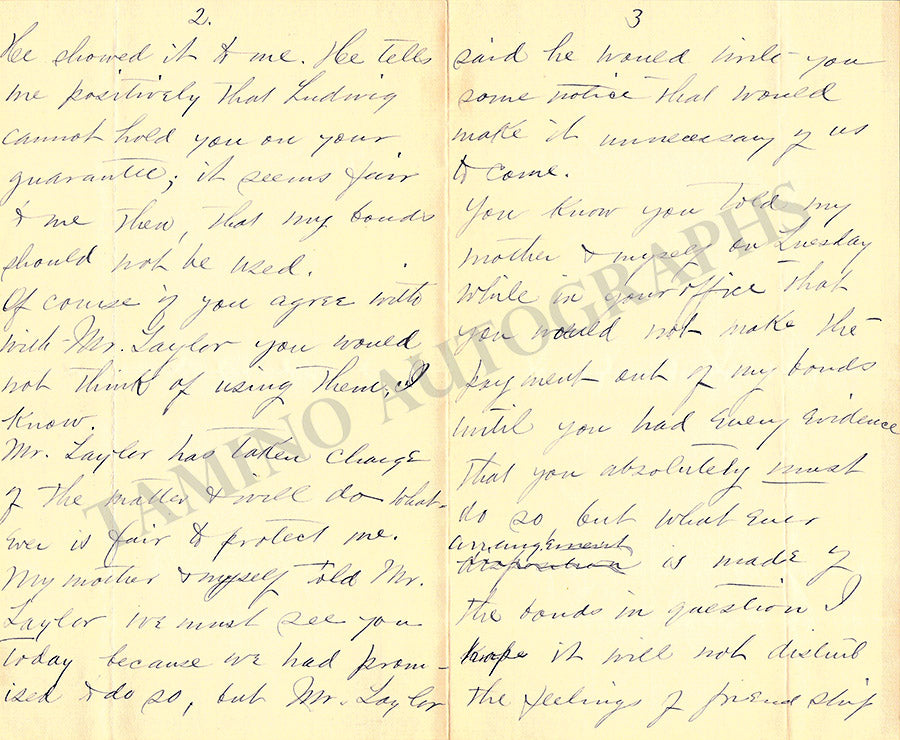 2.
He showed it to me. He tells
me positively that Ludwig
cannot hold you on your
guarantee; it seems fair
to me then, that my bonds
should not be used.
Of course if you agree with
with Mr. Taylor you would
not think of using them, I
know.
Mr. Taylor has taken charge
of the matter & will do what-
ever is fair to protect me.
My mother & myself told Mr.
Taylor we must see you
today because we had prom-
ised to do so, but Mr. Taylor
3
said he would write you
some notice that would
make it unnecessary of us
to come.
You know you told my
mother & myself on Tuesday
while in your office that
you would not make the
payment out of my bonds
until you had every evidence
that you absolutely must
do so, but what ever
arrangement
disposition is made of
the bonds in question I
hope it will not disturb
the feelings of friendship
TAMINO AUTOGRAPHS